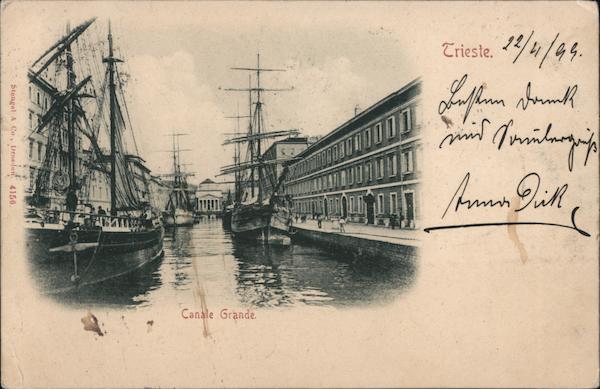 Trieste. 22/4/99.
Besten Dank
und Sonntagsgruß
Anna Dick
Canale Grande.
Stengel & Co., Dresden. 4156